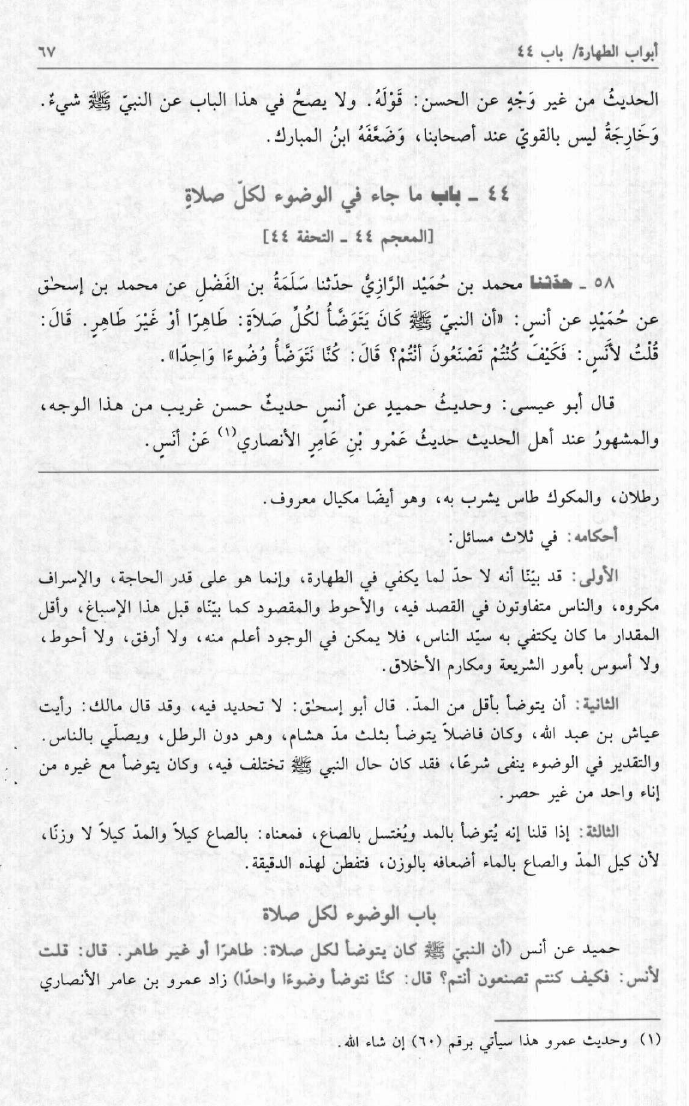 أبواب الطهارة/ باب ٤٤
٦٧
الحديثُ من غير وَجْهٍ عن الحسن: قَوْلَهُ. ولا يصحُّ في هذا الباب عن النبيّ ﷺ شيءٌ.
وَخَارِجَةُ ليس بالقويّ عند أصحابنا، وَضَعَّفَهُ ابنُ المبارك.
٤٤ ـ باب ما جاء في الوضوء لكلّ صلاةٍ
[المعجم ٤٤ ـ التحفة ٤٤]
٥٨ ـ حدّثنا محمد بن حُمَيْد الرَّازِيُّ حدّثنا سَلَمَةُ بن الفَضْلِ عن محمد بن إسحٰق
عن حُمَيْدٍ عن أنسٍ: «أن النبيّ ﷺ كَانَ يَتَوَضَّأُ لكُلِّ صلاَةٍ: طَاهِرًا أوْ غَيْرَ طَاهِرٍ. قَالَ:
قُلْتُ لأَنَسٍ: فَكَيْفَ كُنْتُمْ تَصْنَعُونَ أنْتُمْ؟ قَالَ: كُنَّا نَتَوَضَّأُ وُضُوءًا وَاحِدًا».
قال أبو عيسى: وحديثُ حميدٍ عن أنسٍ حديثٌ حسن غريب من هذا الوجه،
والمشهورُ عند أهل الحديث حديثُ عَمْرو بْنِ عَامِرٍ الأنصاري(١) عَنْ أنَسٍ.
رطلان، والمكوك طاس يشرب به، وهو أيضًا مكيال معروف.
أحكامه: في ثلاث مسائل:
الأولى: قد بيّنّا أنه لا حدّ لما يكفي في الطهارة، وإنما هو على قدر الحاجة، والإسراف
مكروه، والناس متفاوتون في القصد فيه، والأحوط والمقصود كما بيّناه قبل هذا الإسباغ، وأقل
المقدار ما كان يكتفي به سيّد الناس، فلا يمكن في الوجود أعلم منه، ولا أرفق، ولا أحوط،
ولا أسوس بأمور الشريعة ومكارم الأخلاق.
الثانية: أن يتوضأ بأقل من المدّ. قال أبو إسحٰق: لا تحديد فيه، وقد قال مالك: رأيت
عياش بن عبد الله، وكان فاضلاً يتوضأ بثلث مدّ هشام، وهو دون الرطل، ويصلّي بالناس.
والتقدير في الوضوء ينفى شرعًا، فقد كان حال النبي ﷺ تختلف فيه، وكان يتوضأ مع غيره من
إناء واحد من غير حصر.
الثالثة: إذا قلنا إنه يُتوضأ بالمد ويُغتسل بالصاع، فمعناه: بالصاع كيلاً والمدّ كيلاً لا وزنًا،
لأن كيل المدّ والصاع بالماء أضعافه بالوزن، فتفطن لهذه الدقيقة.
باب الوضوء لكل صلاة
حميد عن أنس (أن النبيّ ﷺ كان يتوضأ لكل صلاة: طاهرًا أو غير طاهر. قال: قلت
لأنس: فكيف كنتم تصنعون أنتم؟ قال: كنّا نتوضأ وضوءًا واحدًا) زاد عمرو بن عامر الأنصاري
(١) وحديث عمرو هذا سيأتي برقم (٦٠) إن شاء الله.